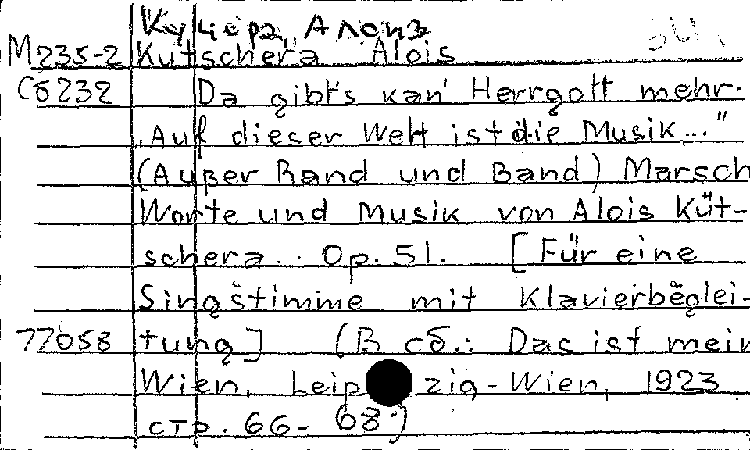 Кучера, Алоиз
М235-2 Kutschera Alois
Сб232 Da gibt's kan' Herrgott mehr.
„Auf dieser Welt ist die Musik..."
(Außer Rand und Band) Marsch
Worte und Musik von Alois Küt-
schera. Op. 51. [Für eine
Singstimme mit Klavierbeglei-
77058 tung] (В сб.: Das ist mein
Wien, Leipzig-Wien, 1923
стр. 66-68)